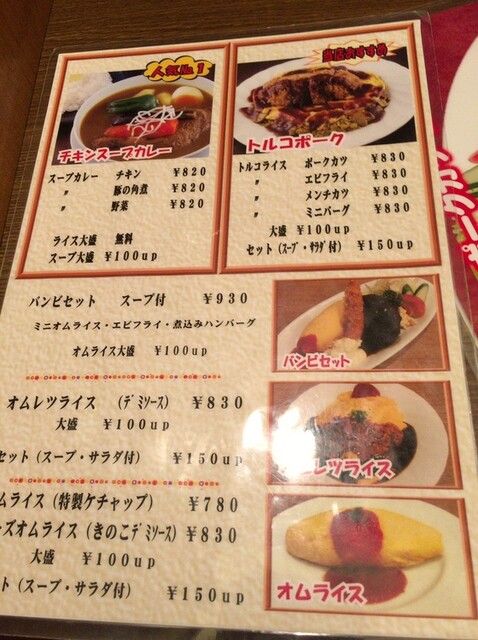 人気No1
チキンスープカレー
スープカレー チキン ¥820
〃 豚の角煮 ¥820
〃 野菜 ¥820
ライス大盛 無料
スープ大盛 ¥100up
当店おすすめ
トルコポーク
トルコライス ポークカツ ¥830
〃 エビフライ ¥830
〃 メンチカツ ¥830
〃 ミニバーグ ¥830
大盛 ¥100up
セット(スープ・サラダ付) ¥150up
バンビセット スープ付 ¥930
ミニオムライス・エビフライ・煮込みハンバーグ
オムライス大盛 ¥100up
バンビセット
オムレツライス (デミソース) ¥830
大盛 ¥100up
セット(スープ・サラダ付) ¥150up
レツライス
ムライス(特製ケチャップ) ¥780
ーズオムライス(きのこデミソース) ¥830
大盛 ¥100up
ト(スープ・サラダ付) ¥150up
オムライス